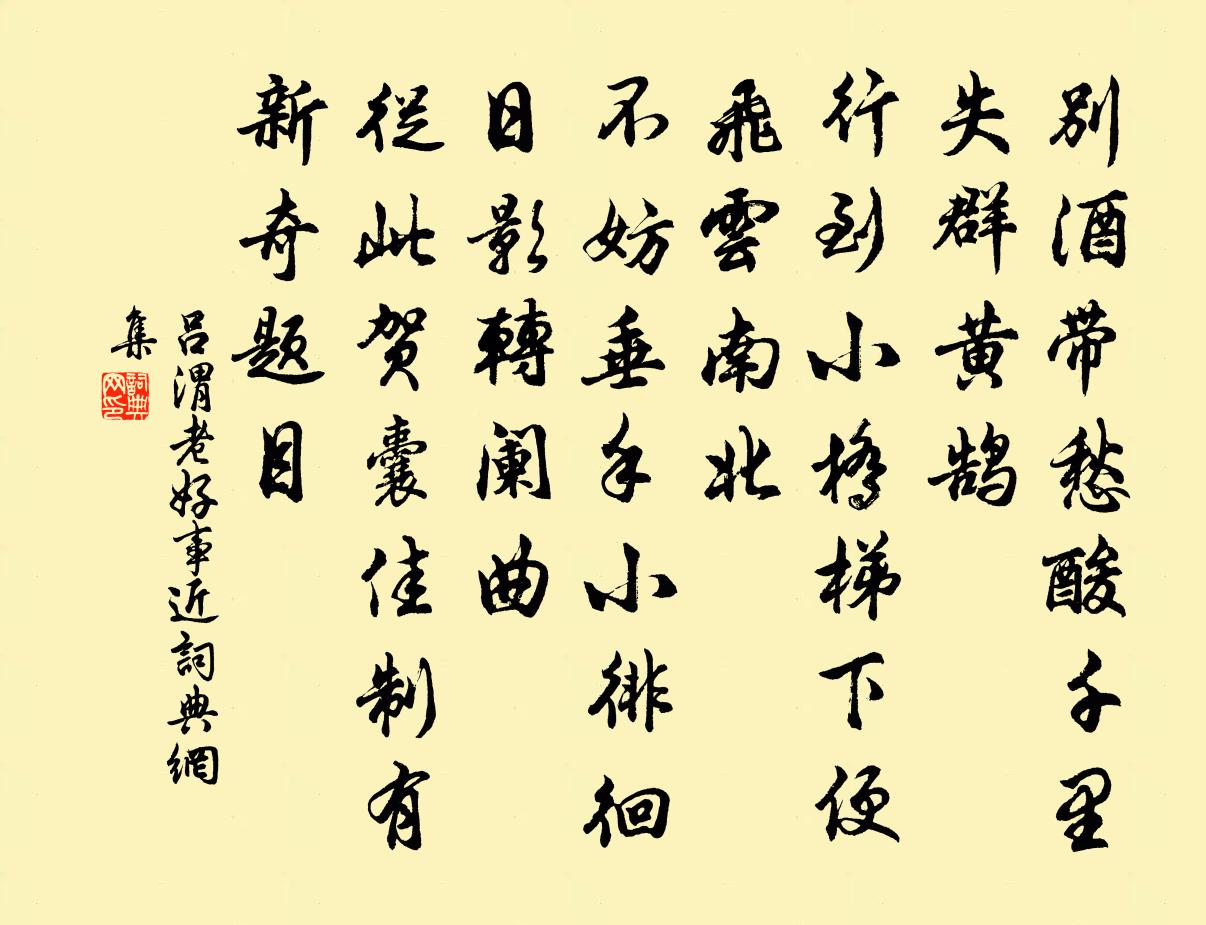 別酒带愁酸千里
失群黄鹄
行到小橋梯下便
飛雲南北
不妨垂手小徘徊
日影轉阑曲
從此贺囊佳制有
新奇题目
吕渭老好事近詞典網
集
詞典
网印